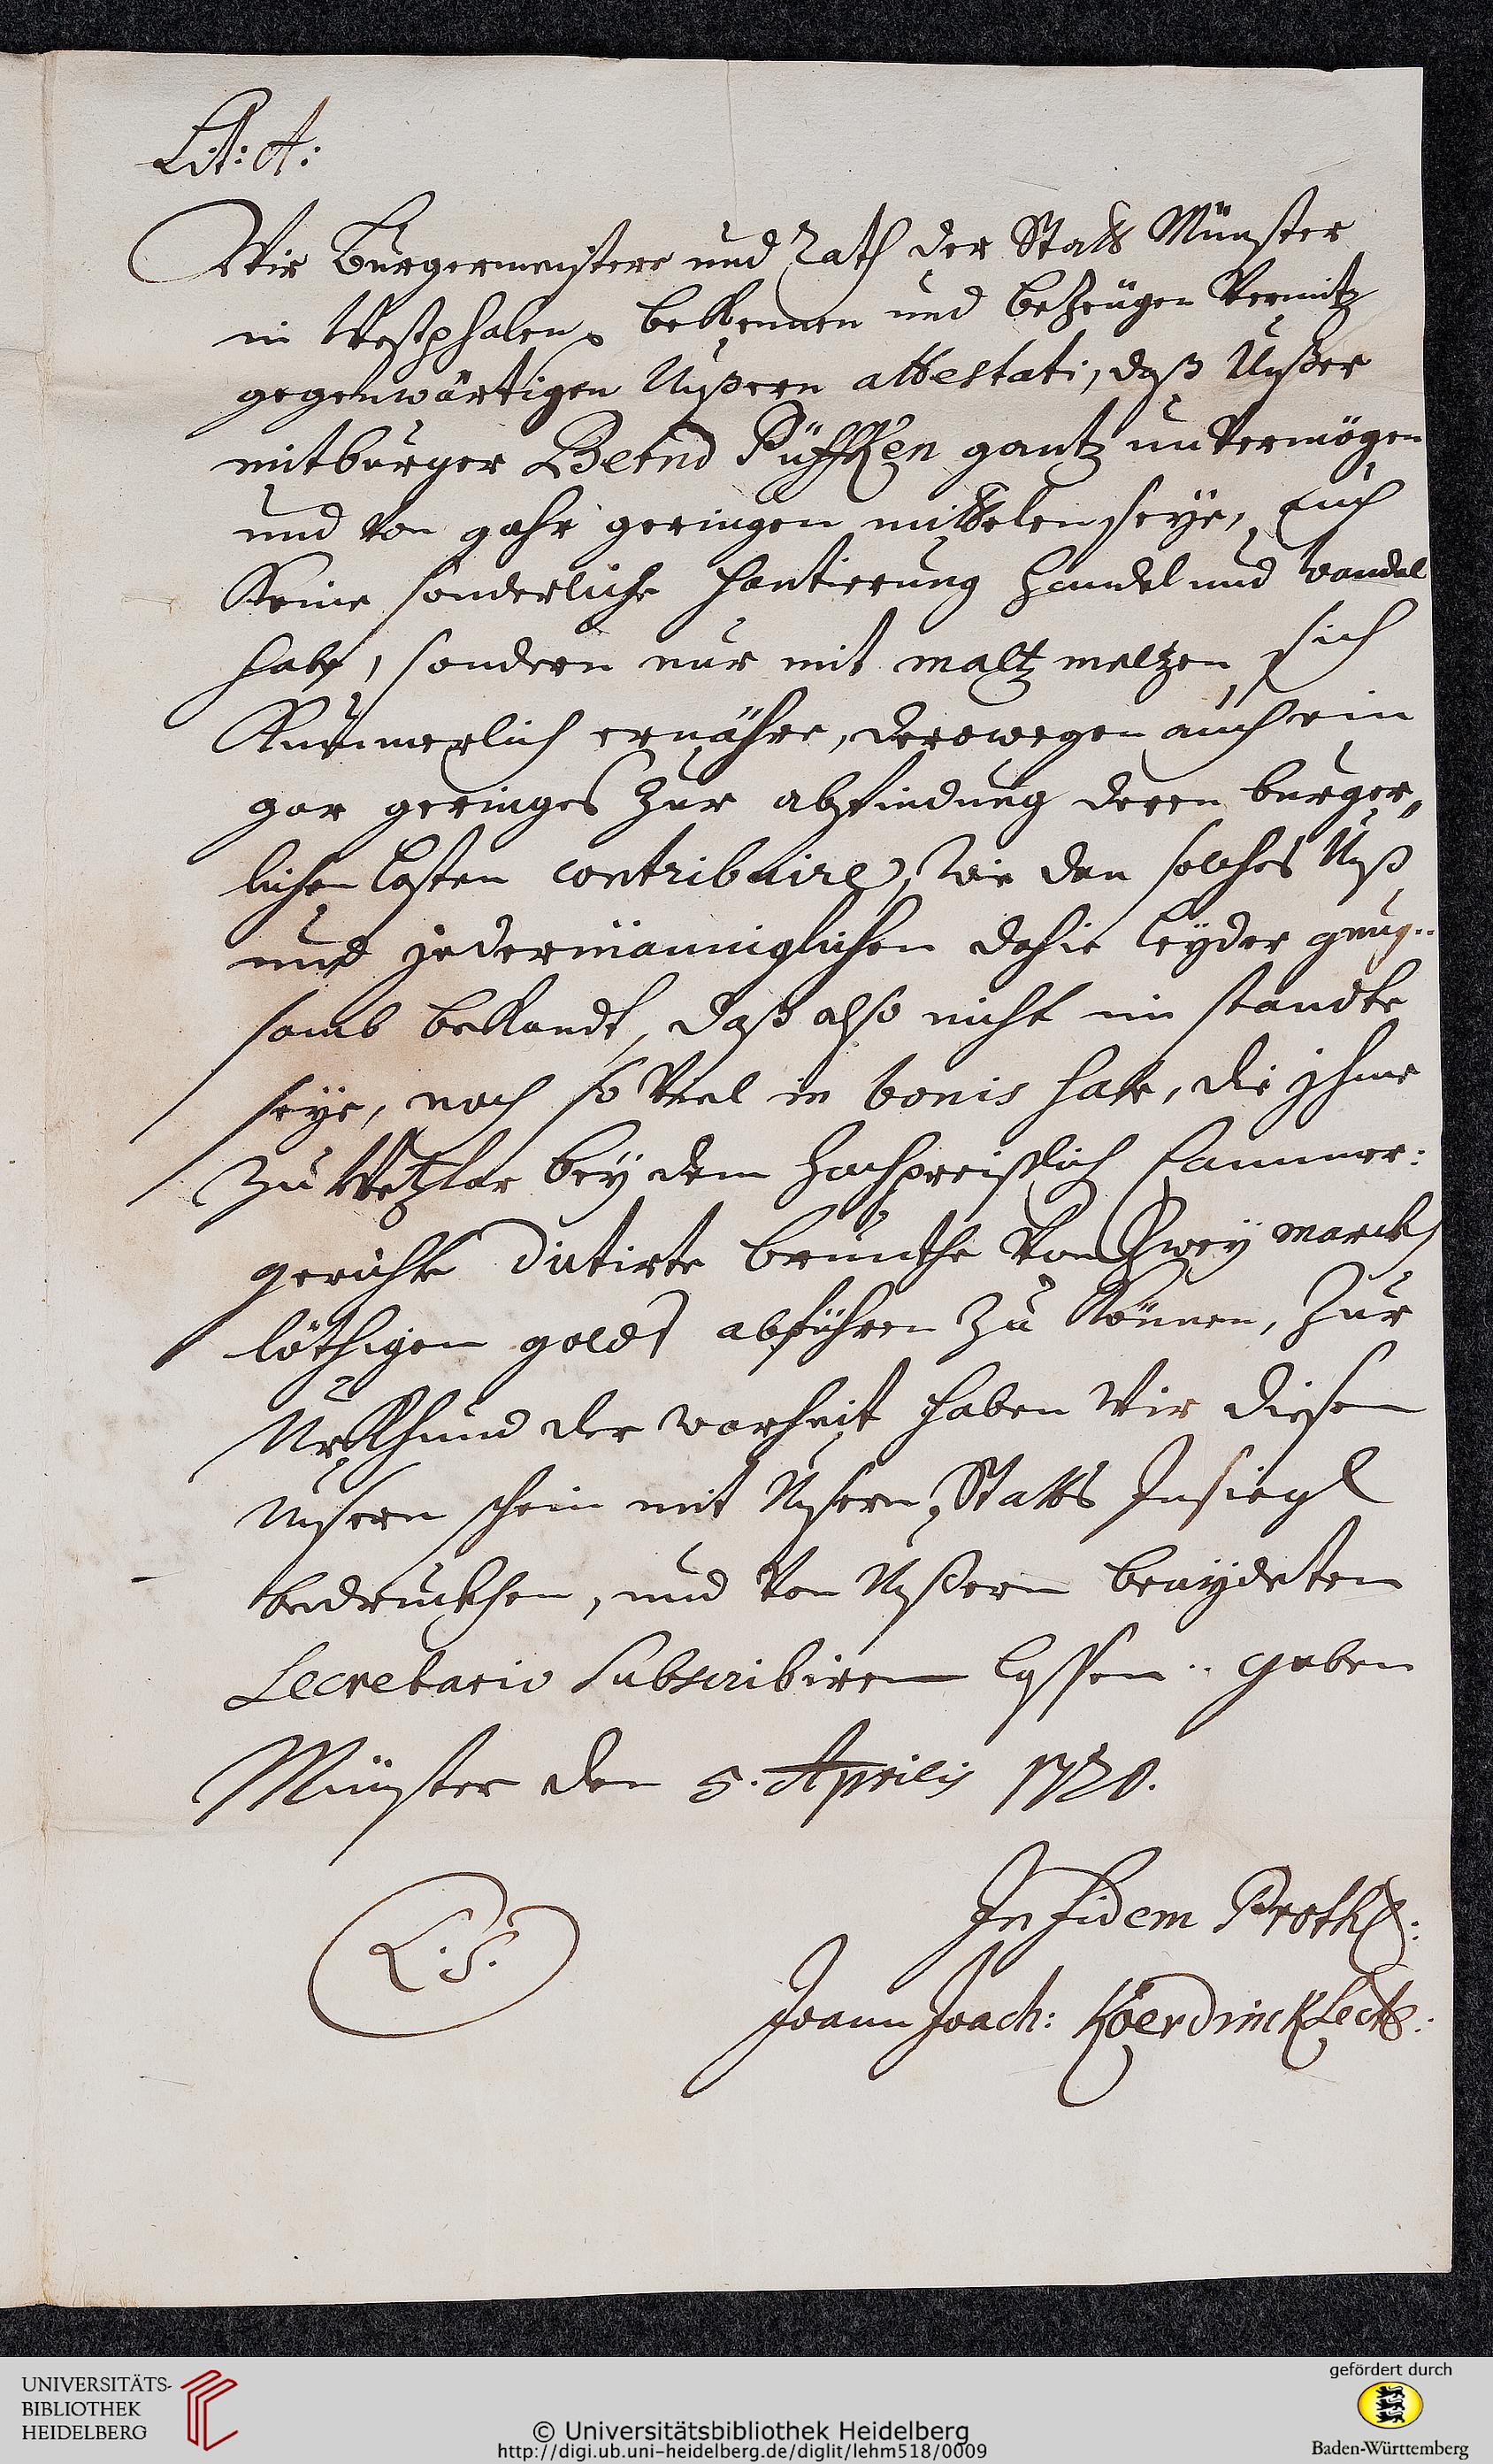 Lit: A:
Wir Burgermeistere und Rath der Statt Münster
in Westphalen bekennen und bezeugen Vermitz
gegenwärtigen Unßeren attestati, daß Unßer
mitburger Bernd Püffken gantz unvermögen
und von gahr geringen mittelen seye, auch
Keine sonderliche hantierung handel und wandel
habe, sondern nur mit maltz meltzen sich
Kümmerlich ernähre, derowegen auch ein
gar geringes zur abfindung deren burger„
lichen lasten contribuire, wie dan solches Unß
und jedermänniglichen dahie leyder gnug..
samb bekandt, daß also nicht im standte
seye, noch so viel in bonis habe, die jhme
zu Wetzlar bey dem hochpreißlich Cammer:
gerichte dictirte brüchte von zwey marck
löthigen goldt abführen zu können, zur
Urkhund der warheit haben wir diesen
Unseren schein mit Unseren Statts Insiegel
bedruckhen, und von Unßeren beaydeten
Secretario subscribiren lassen.. geben
Münster den 5. Aprilis 1720.
L. S.
In fidem Protlli:
Joann Joach: Koerdinck Secrts:
UNIVERSITÄTS-
BIBLIOTHEK
HEIDELBERG
© Universitätsbibliothek Heidelberg
http://digi.ub.uni-heidelberg.de/diglit/lehm518/0009
gefördert durch
Baden-Württemberg